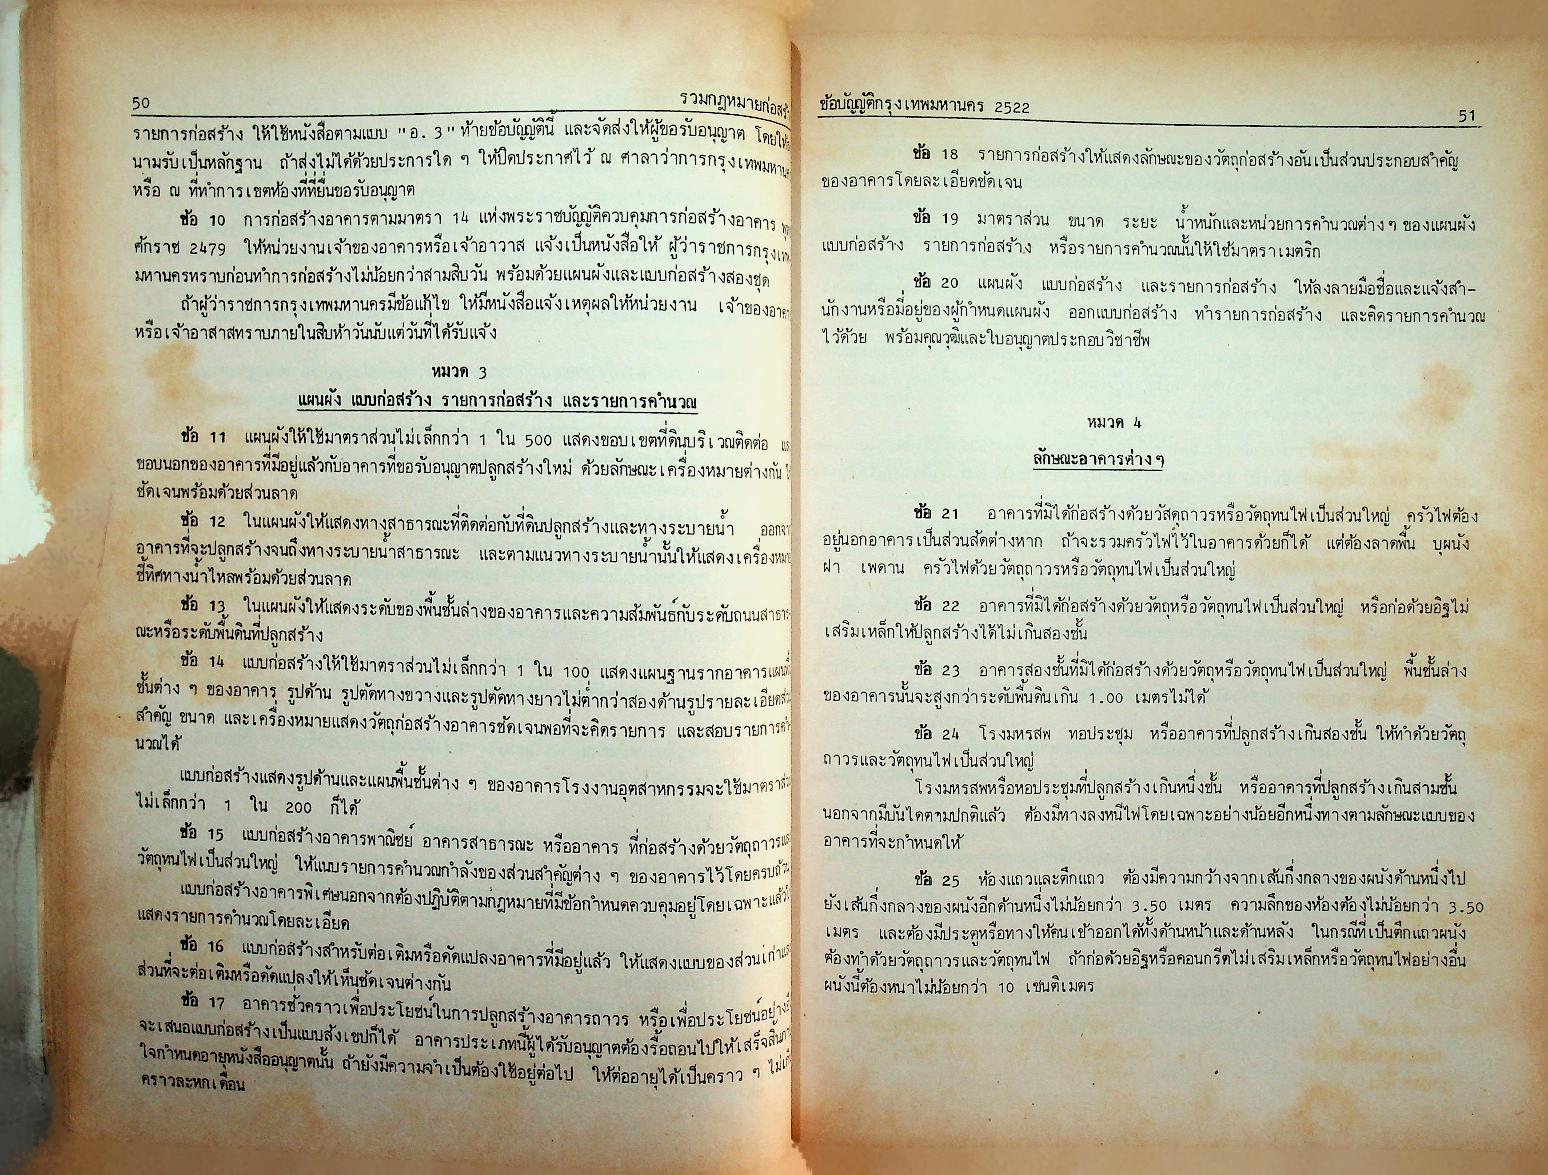 50
รวมกฎหมายก่อสร้า
รายการก่อสร้าง ให้ใช้หนังสือตามแบบ "อ. 3" ท้ายข้อบัญญัตินี้ และจัดส่งให้ผู้ขอรับอนุญาต โดยให้
นามรับเป็นหลักฐาน ถ้าส่งไม่ได้ด้วยประการใด ๆ ให้ปิดประกาศไว้ ณ ศาลาว่าการกรุงเทพมหานค
หรือ ณ ที่ทำการเขตท้องที่ที่ยื่นขอรับอนุญาต
ข้อ 10 การก่อสร้างอาคารตามมาตรา 14 แห่งพระราชบัญญัติควบคุมการก่อสร้างอาคาร พุท
ศักราช 2479 ให้หน่วยงานเจ้าของอาคารหรือเจ้าอาวาส แจ้งเป็นหนังสือให้ ผู้ว่าราชการกรุงเทพ
มหานครทราบก่อนทำการก่อสร้างไม่น้อยกว่าสามสิบวัน พร้อมด้วยแผนผังและแบบก่อสร้างสองชุด
ถ้าผู้ว่าราชการกรุงเทพมหานครมีข้อแก้ไข ให้มีหนังสือแจ้งเหตุผลให้หน่วยงาน เจ้าของอาคา
หรือเจ้าอาสาสทราบภายในสิบห้าวันนับแต่วันที่ได้รับแจ้ง
หมวด 3
แผนผัง แบบก่อสร้าง รายการก่อสร้าง และรายการคำนวณ
ข้อ 11 แผนผังให้ใช้มาตราส่วนไม่เล็กกว่า 1 ใน 500 แสดงขอบเขตที่ดินบริเวณติดต่อ และ
ขอบนอกของอาคารที่มีอยู่แล้วกับอาคารที่ขอรับอนุญาตปลูกสร้างใหม่ ด้วยลักษณะเครื่องหมายต่างกัน ใ
ชัดเจนพร้อมด้วยส่วนลาด
ข้อ 12 ในแผนผังให้แสดงทางสาธารณะที่ติดต่อกับที่ดินปลูกสร้างและทางระบายน้ำ ออกจา
อาคารที่จะปลูกสร้างจนถึงทางระบายน้ำสาธารณะ และตามแนวทางระบายน้ำนั้นให้แสดงเครื่องหมาย
ชี้ทิศทางน้ำไหลพร้อมด้วยส่วนลาด
ข้อ 13 ในแผนผังให้แสดงระดับของพื้นชั้นล่างของอาคารและความสัมพันธ์กับระดับถนนสาธาร-
ณะหรือระดับพื้นดินที่ปลูกสร้าง
ข้อ 14 แบบก่อสร้างให้ใช้มาตราส่วนไม่เล็กกว่า 1 ใน 100 แสดงแผนฐานรากอาคารแผนพื้
ชั้นต่าง ๆ ของอาคาร รูปด้าน รูปตัดทางขวางและรูปตัดทางยาวไม่ต่ำกว่าสองด้านรูปรายละเอียดส่ว
สำคัญ ขนาด และเครื่องหมายแสดงวัตถุก่อสร้างอาคารชัดเจนพอที่จะคิดรายการ และสอบรายการคำ
นวณได้
แบบก่อสร้างแสดงรูปด้านและแผนพื้นชั้นต่าง ๆ ของอาคารโรงงานอุตสาหกรรมจะใช้มาตราส่ว
ไม่เล็กกว่า 1 ใน 200 ก็ได้
ข้อ 15 แบบก่อสร้างอาคารพาณิชย์ อาคารสาธารณะ หรืออาคาร ที่ก่อสร้างด้วยวัตถุถาวรแล
วัตถุทนไฟเป็นส่วนใหญ่ ให้แนบรายการคำนวณกำลังของส่วนสำคัญต่าง ๆ ของอาคารไว้โดยครบถ้วน
แบบก่อสร้างอาคารพิเศษนอกจากต้องปฏิบัติตามกฎหมายที่มีข้อกำหนดควบคุมอยู่โดยเฉพาะแล้วใ
แสดงรายการคำนวณโดยละเอียด
ข้อ 16 แบบก่อสร้างสำหรับต่อเติมหรือดัดแปลงอาคารที่มีอยู่แล้ว ให้แสดงแบบของส่วนเก่าแล
ส่วนที่จะต่อเติมหรือดัดแปลงให้เห็นชัดเจนต่างกัน
ข้อ 17 อาคารชั่วคราวเพื่อประโยชน์ในการปลูกสร้างอาคารถาวร หรือเพื่อประโยชน์อย่างอื่
จะเสนอแบบก่อสร้างเป็นแบบสังเขปก็ได้ อาคารประเภทนี้ผู้ได้รับอนุญาตต้องรื้อถอนไปให้เสร็จสิ้นภา
ใจกำหนดอายุหนังสืออนุญาตนั้น ถ้ายังมีความจำเป็นต้องใช้อยู่ต่อไป ให้ต่ออายุได้เป็นคราว ๆ ไม่เกิ
คราวละหกเดือน
ข้อบัญญัติกรุงเทพมหานคร 2522
51
ข้อ 18 รายการก่อสร้างให้แสดงลักษณะของวัตถุก่อสร้างอันเป็นส่วนประกอบสำคัญ
ของอาคารโดยละเอียดชัดเจน
ข้อ 19 มาตราส่วน ขนาด ระยะ น้ำหนักและหน่วยการคำนวณต่างๆ ของแผนผัง
แบบก่อสร้าง รายการก่อสร้าง หรือรายการคำนวณนั้นให้ใช้มาตราเมตริก
ข้อ 20 แผนผัง แบบก่อสร้าง และรายการก่อสร้าง ให้ลงลายมือชื่อและแจ้งสำ-
นักงานหรือมี่อยู่ของผู้กำหนดแผนผัง ออกแบบก่อสร้าง ทำรายการก่อสร้าง และคิดรายการคำนวณ
ไว้ด้วย พร้อมคุณวุฒิและใบอนุญาตประกอบวิชาชีพ
หมวด 4
ลักษณะอาคารต่างๆ
ข้อ 21 อาคารที่มิได้ก่อสร้างด้วยวัสดุถาวรหรือวัตถุทนไฟเป็นส่วนใหญ่ ครัวไฟต้อง
อยู่นอกอาคารเป็นส่วนสัดต่างหาก ถ้าจะรวมครัวไฟไว้ในอาคารด้วยก็ได้ แต่ต้องลาดพื้น บุผนัง
ฝา เพดาน ครัวไฟด้วยวัตถุถาวรหรือวัตถุทนไฟเป็นส่วนใหญ่
ข้อ 22 อาคารที่มิได้ก่อสร้างด้วยวัตถุหรือวัตถุทนไฟเป็นส่วนใหญ่ หรือก่อด้วยอิฐไม่
เสริมเหล็กให้ปลูกสร้างได้ไม่เกินสองชั้น
ข้อ 23 อาคารสองชั้นที่มิได้ก่อสร้างด้วยวัตถุหรือวัตถุทนไฟเป็นส่วนใหญ่ พื้นชั้นล่าง
ของอาคารนั้นจะสูงกว่าระดับพื้นดินเกิน 1.00 เมตรไม่ได้
ข้อ 24 โรงมหรสพ หอประชุม หรืออาคารที่ปลูกสร้างเกินสองชั้น ให้ทำด้วยวัตถุ
ถาวรและวัตถุทนไฟเป็นส่วนใหญ่
โรงมหรสพหรือหอประชุมที่ปลูกสร้างเกินหนึ่งชั้น หรืออาคารที่ปลูกสร้างเกินสามชั้น
นอกจากมีบันไดตามปกติแล้ว ต้องมีทางลงหนีไฟโดยเฉพาะอย่างน้อยอีกหนึ่งทางตามลักษณะแบบของ
อาคารที่จะกำหนดให้
ข้อ 25 ห้องแถวและตึกแถว ต้องมีความกว้างจากเส้นกึ่งกลางของผนังด้านหนึ่งไป
ยังเส้นกึ่งกลางของผนังอีกด้านหนึ่งไม่น้อยกว่า 3.50 เมตร ความลึกของห้องต้องไม่น้อยกว่า 3.50
เมตร และต้องมีประตูหรือทางให้คนเข้าออกได้ทั้งด้านหน้าและด้านหลัง ในกรณีที่เป็นตึกแถวผนัง
ต้องทำด้วยวัตถุถาวรและวัตถุทนไฟ ถ้าก่อด้วยอิฐหรือคอนกรีตไม่เสริมเหล็กหรือวัตถุทนไฟอย่างอื่น
ผนังนี้ต้องหนาไม่น้อยกว่า 10 เซนติเมตร